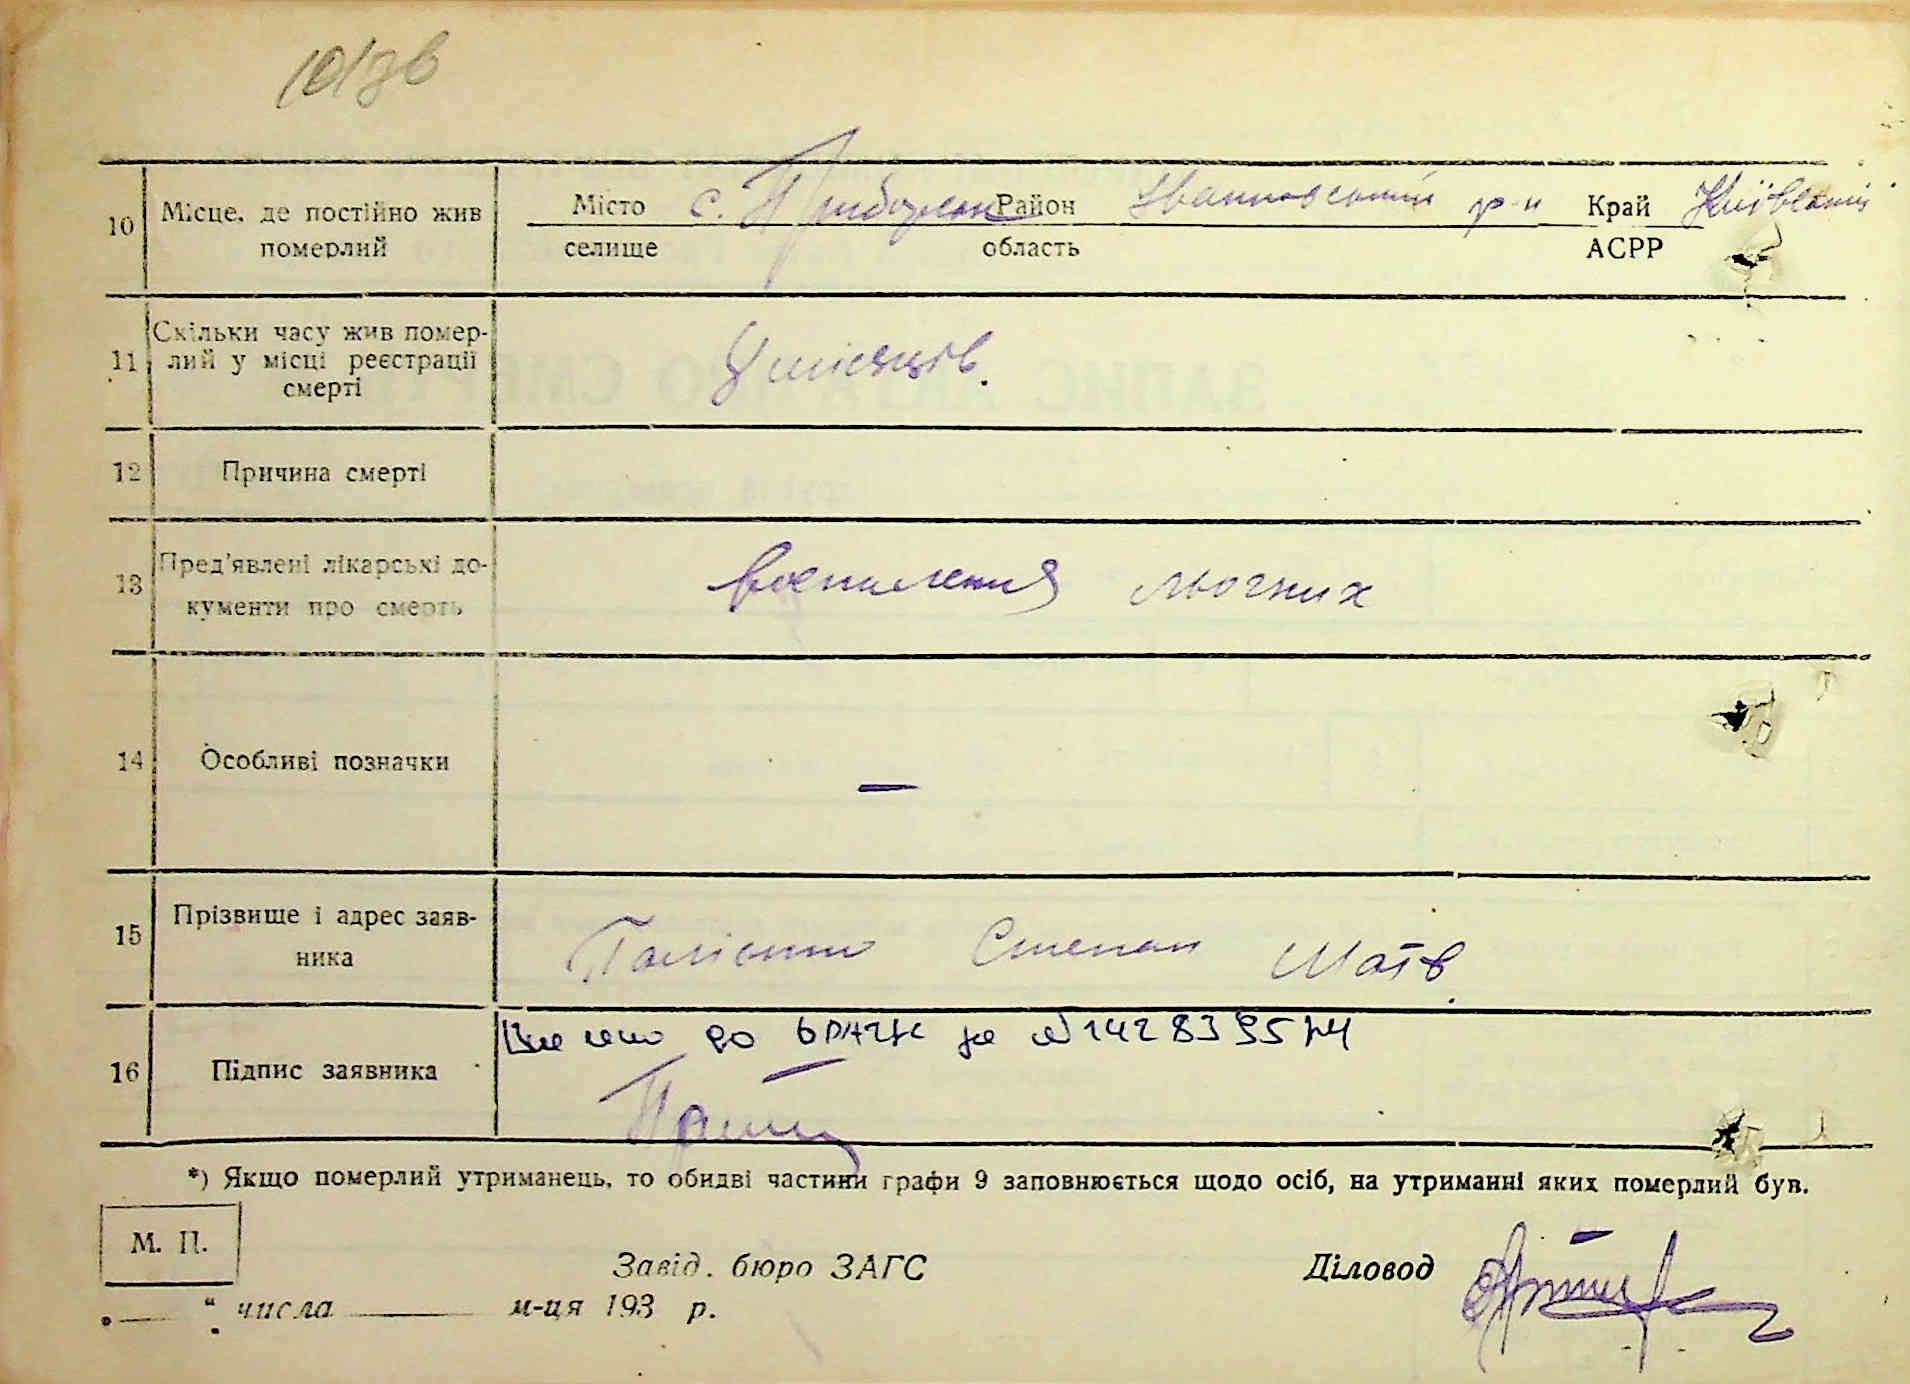 10 Місце, де постійно жив померлий
Місто селище с. Район область р-н Край АСРР Київської
11 Скільки часу жив помер-
лий у місці реєстрації
смерті
місяців.
12 Причина смерті
13 Пред'явлені лікарські до-
кументи про смерть
воспиления льогних
14 Особливі позначки
—
15 Прізвище і адрес заяв-
ника
Степан
16 Підпис заявника
до ДРАЦС за №
*) Якщо померлий утриманець, то обидві частини графи 9 заповнюється щодо осіб, на утриманні яких померлий був.
М. П.
Завід. бюро ЗАГС Діловод
„ “ числа м-ця 193 р.